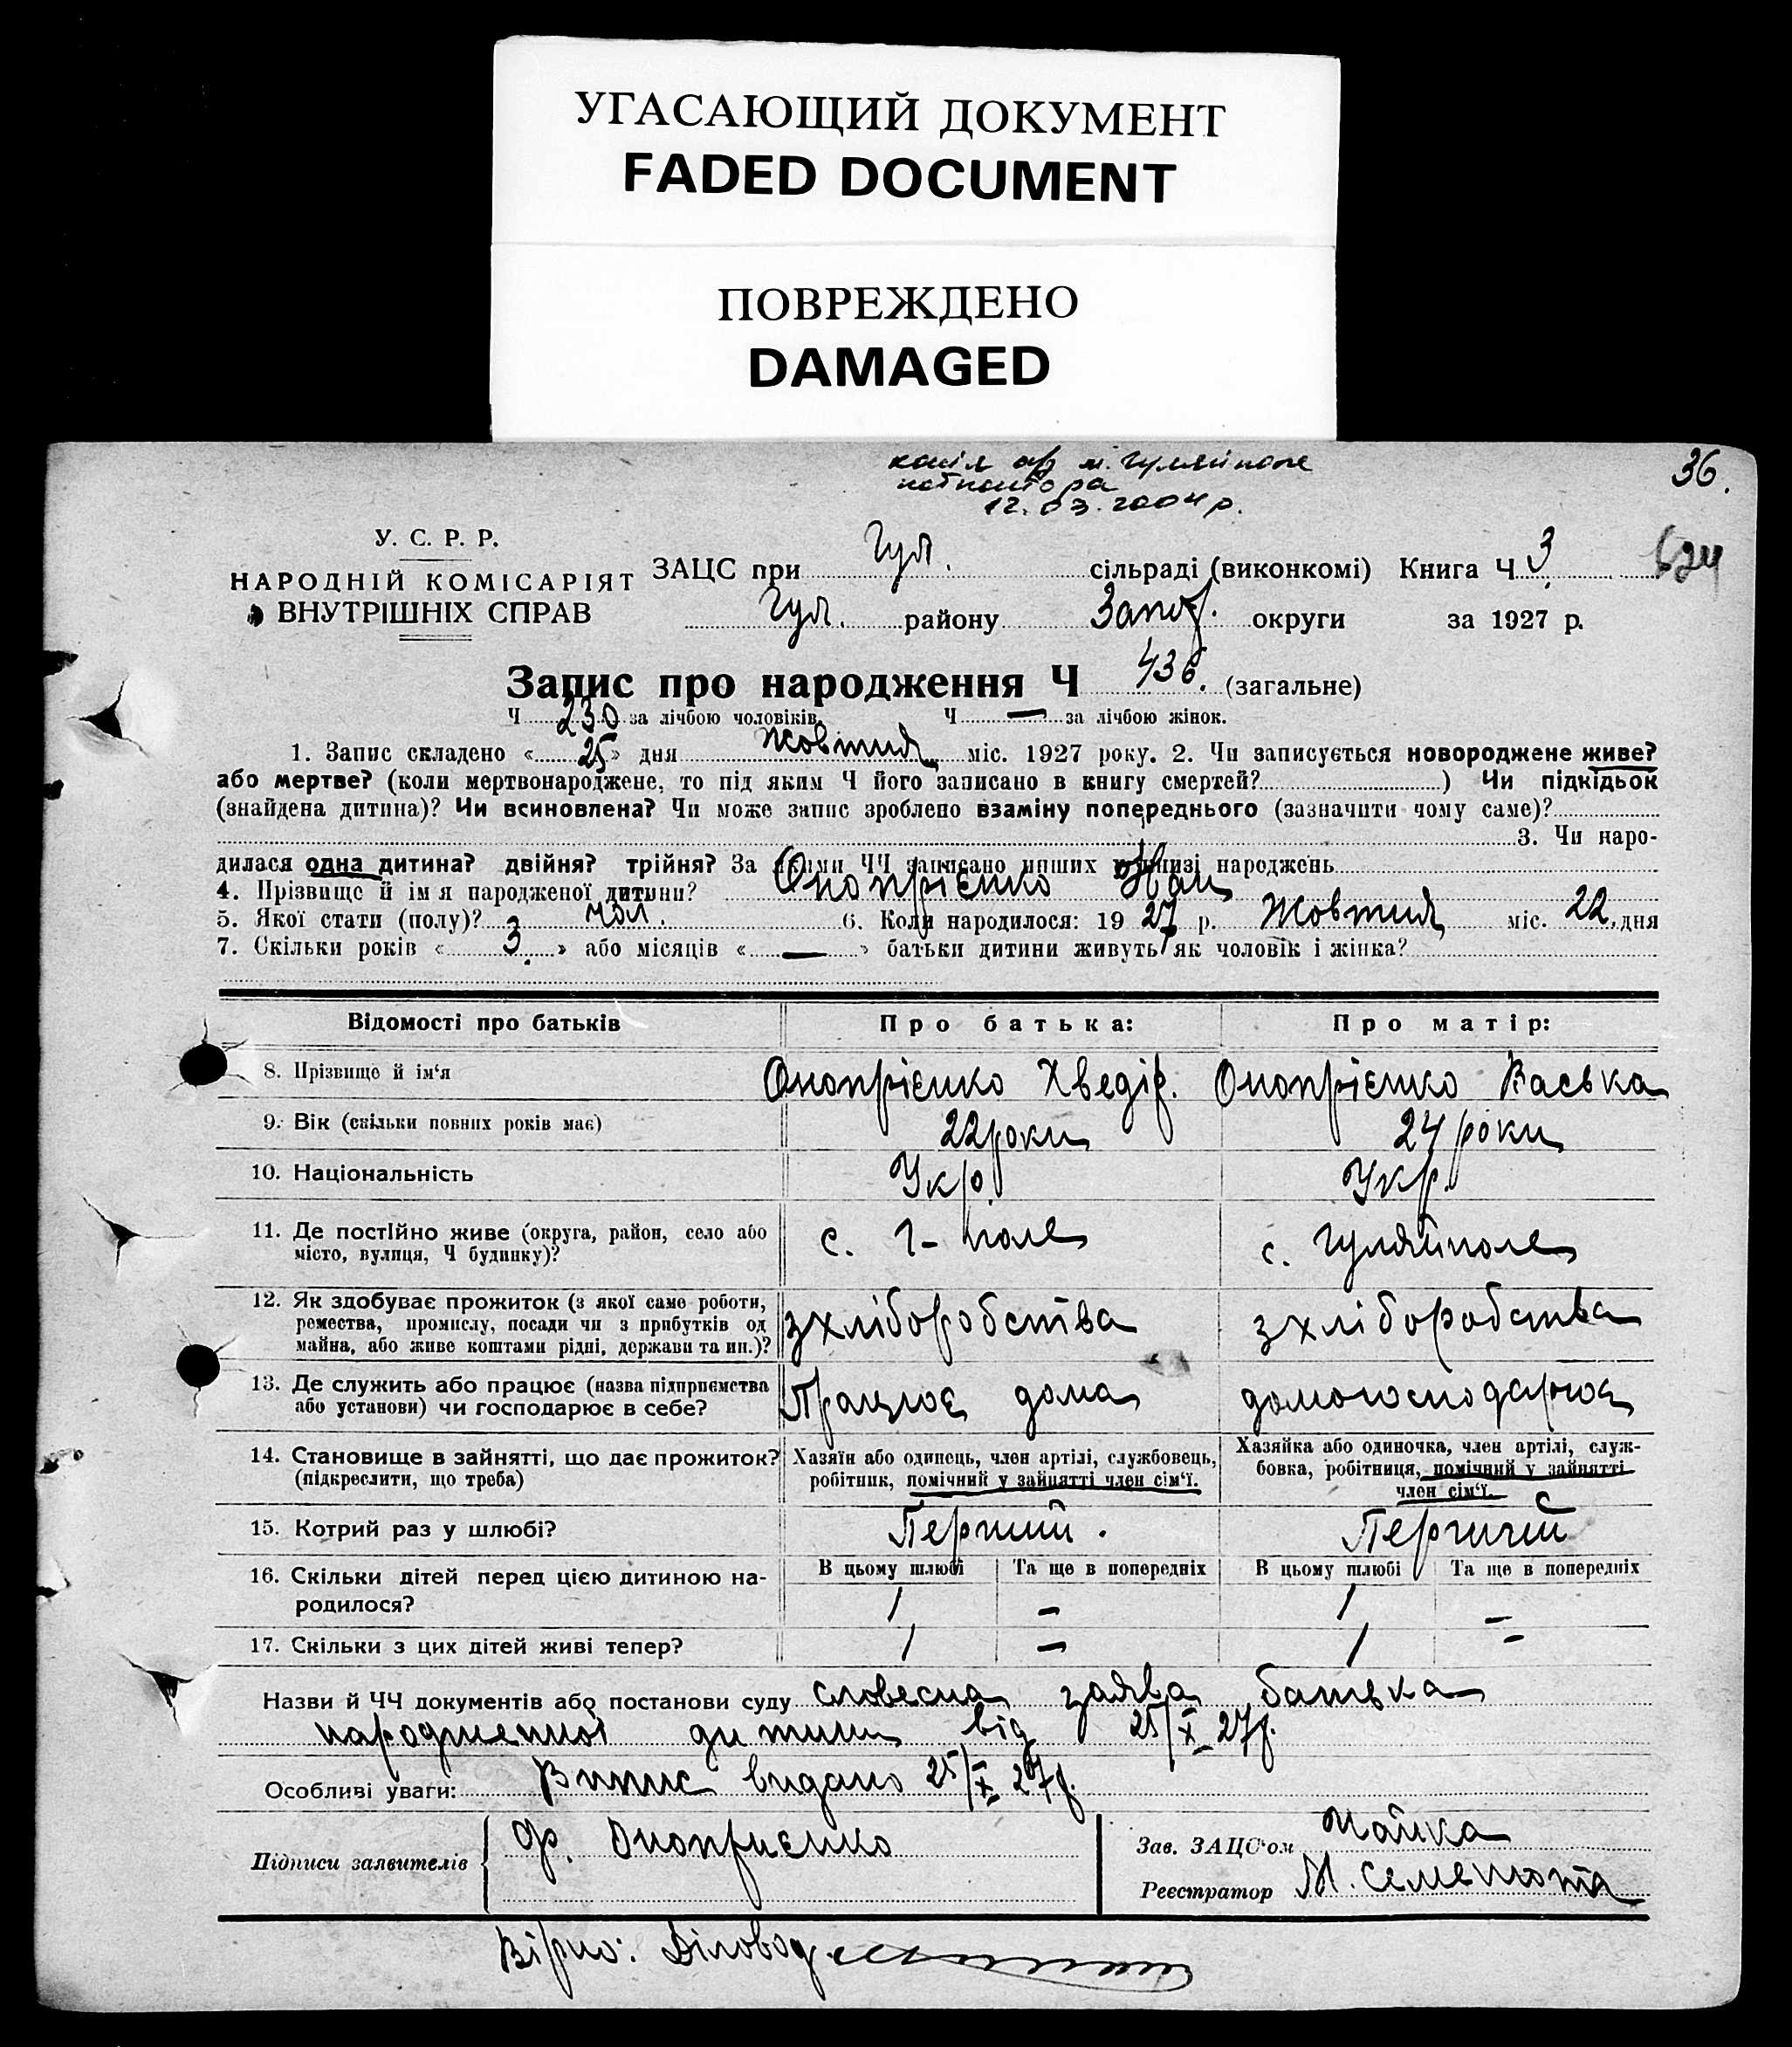 УГАСАЮЩИЙ ДОКУМЕНТ
FADED DOCUMENT
ПОВРЕЖДЕНО
DAMAGED
копія м. Гуляйполе
12.03.2004 р.
36.
У. С. Р. Р.
НАРОДНІЙ КОМІСАРІЯТ
ВНУТРІШНІХ СПРАВ
ЗАЦС при Гул. сільраді (виконкомі) Книга Ч 3
Гул. району Запор. округи за 1927 р.
Запис про народження Ч 436. (загальне)
Ч 230 за лічбою чоловіків. Ч — за лічбою жінок.
1. Запис складено « 25 » дня Жовтня міс. 1927 року. 2. Чи записується новороджене живе?
або мертве? (коли мертвонароджене, то під яким Ч його записано в книгу смертей? ) Чи підкідьок
(знайдена дитина)? Чи всиновлена? Чи може запис зроблено взаміну попереднього (зазначити чому саме)?
3. Чи наро-
дилася одна дитина? двійня? трійня? За якими ЧЧ записано инших у книзі народжень
4. Прізвище й ім'я народженої дитини? Онопрієнко
5. Якої стати (полу)? чол. 6. Коли народилося: 19 27 р. Жовтня міс. 22. дня
7. Скільки років « 3 » або місяців « — » батьки дитини живуть як чоловік і жінка?
Відомості про батьків Про батька: Про матір:
8. Прізвище й ім'я Онопрієнко Хведір. Онопрієнко Васька
9. Вік (скільки повних років має) 22 роки 24 роки
10. Національність Укр. Укр.
11. Де постійно живе (округа, район, село або
місто, вулиця, Ч будинку)? с. Г-поле с. Гуляйполе
12. Як здобуває прожиток (з якої саме роботи,
ремества, промислу, посади чи з прибутків од
майна, або живе коштами рідні, держави та ин.)? з хліборобства з хліборобства
13. Де служить або працює (назва підприємства
або установи) чи господарює в себе? Працює дома домогосподарює
14. Становище в зайнятті, що дає прожиток?
(підкреслити, що треба)
Хазяїн або одинець, член артілі, службовець,
робітник, помічний у зайнятті член сім'ї.
Хазяйка або одиночка, член артілі, служ-
бовка, робітниця, помічний у зайнятті
член сім'ї.
15. Котрий раз у шлюбі? Перший. Перший
16. Скільки дітей перед цією дитиною на-
родилося?
В цьому шлюбі Та ще в попередніх В цьому шлюбі Та ще в попередніх
1 — 1 —
17. Скільки з цих дітей живі тепер? 1 — 1 —
Назви й ЧЧ документів або постанови суду словесна заява батька
народженної дитини від 25/X-27р.
Особливі уваги: Випис видано 25/X 27р.
Підписи заявителів Ф. Оноприєнко
Зав. ЗАЦС'ом
Реєстратор М. Семенюта
Вірно: Діловод